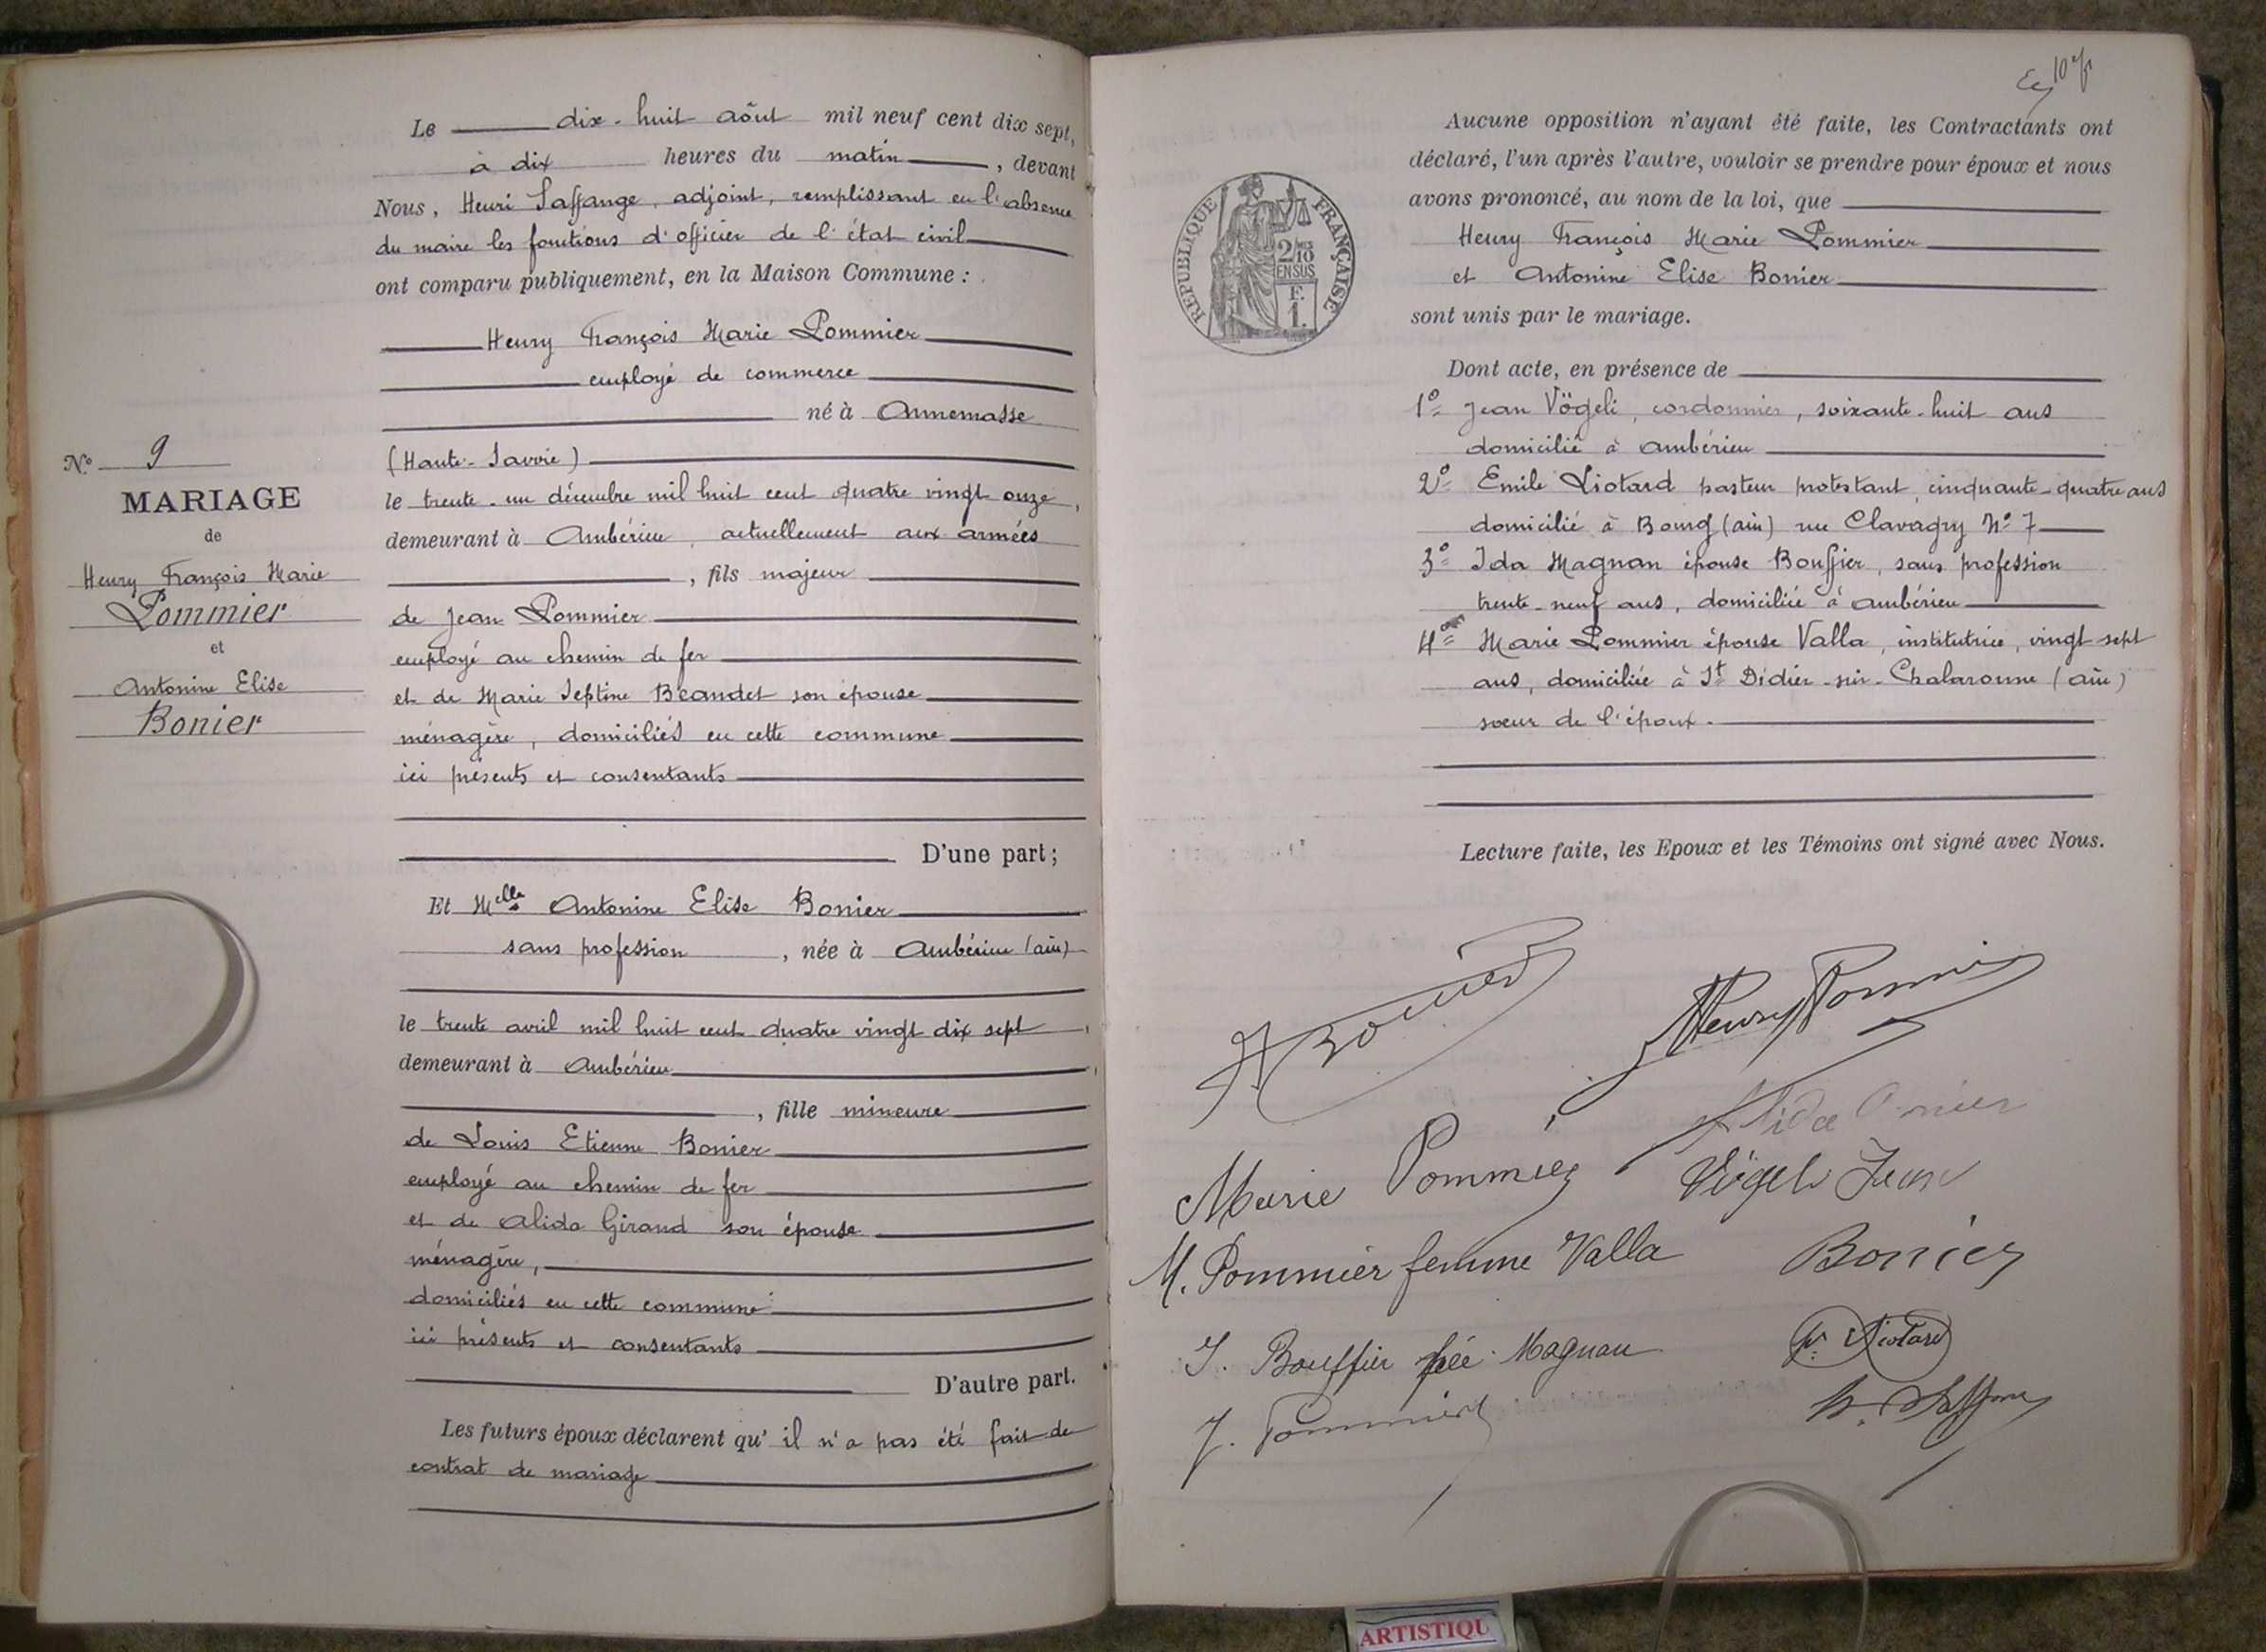 Le dix-huit août mil neuf cent dix sept,
à dix heures du matin, devant
Nous, Henri Laffange, adjoint, remplissant en l'absence
du maire les fonctions d'officier de l'état civil
ont comparu publiquement, en la Maison Commune :
Henry François Marie Pommier
employé de commerce
né à Annemasse
(Haute-Savoie)
le trente-un décembre mil huit cent quatre vingt onze,
demeurant à Ambérieu, actuellement aux armées
, fils majeur
de Jean Pommier
employé au chemin de fer
et de Marie Septine Beaudet son épouse
ménagère, domiciliés en cette commune
ici présents et consentants
D'une part ;
N° 9
MARIAGE
de
Henry François Marie
Pommier
et
Antonine Elise
Bonier
Et Melle Antonine Elise Bonier
sans profession, née à Ambérieu (ain)
le trente avril mil huit cent quatre vingt dix sept,
demeurant à Ambérieu,
, fille mineure
de Louis Etienne Bonier
employé au chemin de fer
et de Alida Giraud son épouse
ménagère,
domiciliés en cette commune
ici présents et consentants
D'autre part.
Les futurs époux déclarent qu'il n'a pas été fait de
contrat de mariage
Aucune opposition n'ayant été faite, les Contractants ont
déclaré, l'un après l'autre, vouloir se prendre pour époux et nous
avons prononcé, au nom de la loi, que
Henry François Marie Pommier
et Antonine Elise Bonier
sont unis par le mariage.
RÉPUBLIQUE FRANÇAISE
2/10
EN SUS
F.
1.
Dont acte, en présence de
1° Jean Vögeli, cordonnier, soixante-huit ans
domicilié à Ambérieu
2° Emile Liotard pasteur protestant, cinquante-quatre ans
domicilié à Bourg (ain) rue Clavagry N° 7
3° Ida Magnan épouse Bouffier, sans profession
trente-neuf ans, domiciliée à Ambérieu
4° Marie Pommier épouse Valla, institutrice, vingt sept
ans, domiciliée à St Didier-sur-Chalaronne (ain)
sœur de l'époux.
Lecture faite, les Epoux et les Témoins ont signé avec Nous.
A Bonier
Henry Pommier
Alida Bonier
Marie Pommier
Vögeli Jean
M. Pommier femme Valla
Bonier
I. Bouffier née Magnan
Liotard
J. Pommier
ARTISTIQU